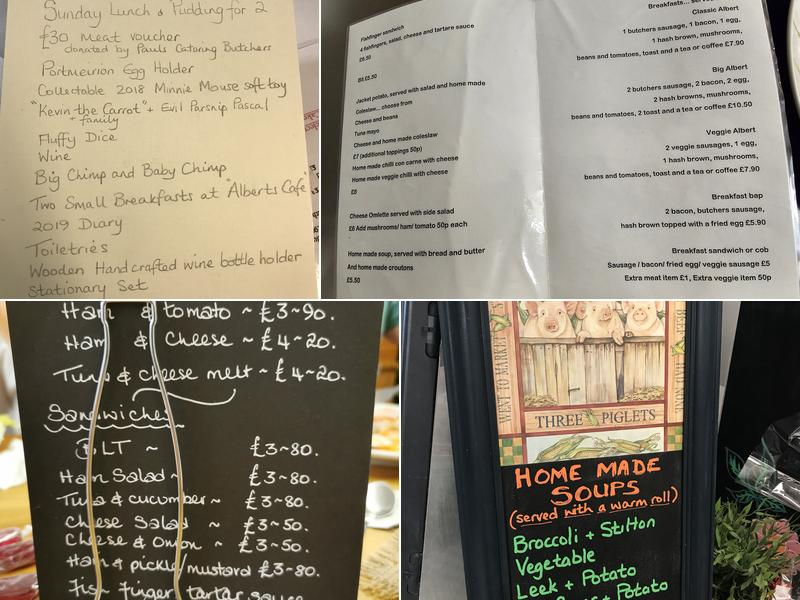 Sunday Lunch & Pudding for 2
£30 meat voucher
donated by Pauls Catering Butchers
Portmeirion Egg Holder
Collectable 2018 Minnie Mouse soft toy
"Kevin the Carrot" + Evil Parsnip Pascal
+ family
Fluffy Dice
Wine
Big Chimp and Baby Chimp
Two Small Breakfasts at "Alberts Cafe"
2019 Diary
Toiletries
Wooden Handcrafted wine bottle holder
Stationary Set
Fishfinger sandwich
4 fishfingers, salad, cheese and tartare sauce
£6.50
Blt £5.50
Jacket potato, served with salad and home made
Coleslaw... choose from
Cheese and beans
Tuna mayo
Cheese and home made coleslaw
£7 (additional toppings 50p)
Home made chilli con carne with cheese
Home made veggie chilli with cheese
£8
Cheese Omlette served with side salad
£6 Add mushrooms/ ham/ tomato 50p each
Home made soup, served with bread and butter
And home made croutons
£5.50
Breakfasts...
Classic Albert
1 butchers sausage, 1 bacon, 1 egg,
1 hash brown, mushrooms,
beans and tomatoes, toast and a tea or coffee £7.90
Big Albert
2 butchers sausage, 2 bacon, 2 egg,
2 hash browns, mushrooms,
beans and tomatoes, 2 toast and a tea or coffee £10.50
Veggie Albert
2 veggie sausages, 1 egg,
1 hash brown, mushrooms,
beans and tomatoes, toast and a tea or coffee £7.90
Breakfast bap
2 bacon, butchers sausage,
hash brown topped with a fried egg £5.90
Breakfast sandwich or cob
Sausage / bacon/ fried egg/ veggie sausage £5
Extra meat item £1, Extra veggie item 50p
Ham & tomato ~ £3~90.
Ham & Cheese ~ £4~20.
Tuna & cheese melt ~ £4~20.
Sandwiches
BLT ~ £3~80.
Ham Salad ~ £3~80.
Tuna & cucumber ~ £3~80.
Cheese Salad ~ £3~50.
Cheese & Onion ~ £3~50.
Ham & pickle/mustard £3~80.
Fish Finger tartar sauce
WENT TO MARKET
THREE PIGLETS
HOME MADE
SOUPS
(served with a warm roll)
Broccoli + Stilton
Vegetable
Leek + Potato
+ Potato